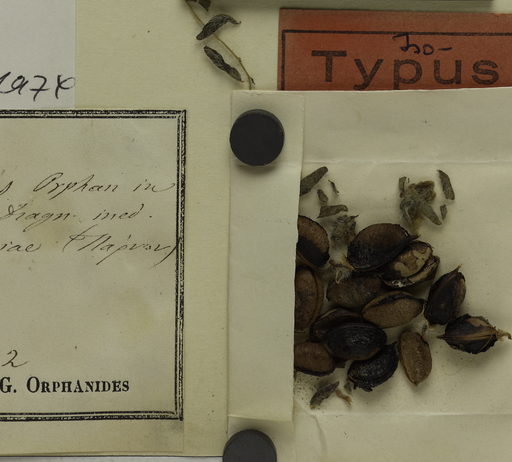 Iso-
Typus
Orphan in
fragn. ined.
iae (Πάρνων)
2
G. ORPHANIDES